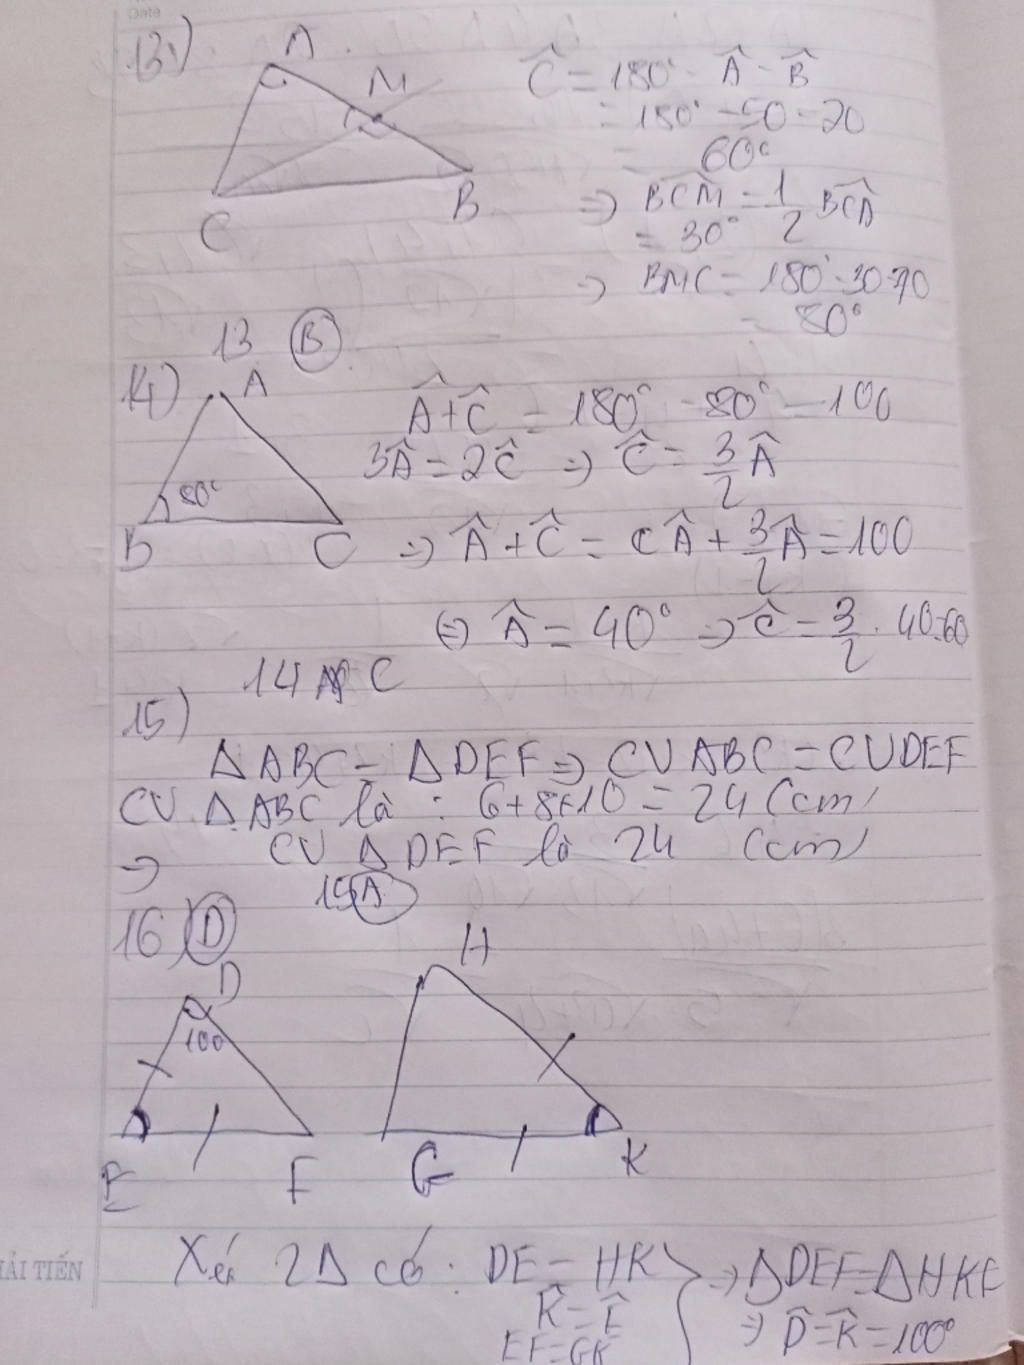 Date
13,)
A
M
C
B
Ĉ = 180° - Â - B̂
= 180° - 50 - 70
= 60°
=> BCM = 1/2 BCA
= 30°
=> BMC = 180° - 30 - 70
= 80°
13 B
14)
A
80°
B
C
Â + Ĉ = 180° - 80° = 100
3Â = 2Ĉ => Ĉ = 3/2 Â
=> Â + Ĉ = Â + 3/2 Â = 100
<=> Â = 40° => Ĉ = 3/2 . 40 = 60
14 C
15)
Δ ABC = Δ DEF => CV ABC = CV DEF
CV Δ ABC là : 6+8+10 = 24 (cm)
=> CV Δ DEF là 24 (cm)
15 A
16) D
D
100
E
F
H
G
K
ẢI TIẾN
Xét 2Δ có : DE = HK
K̂ = Ê
EF = GK
=> Δ DEF = Δ HKG
=> D̂ = K̂ = 100°